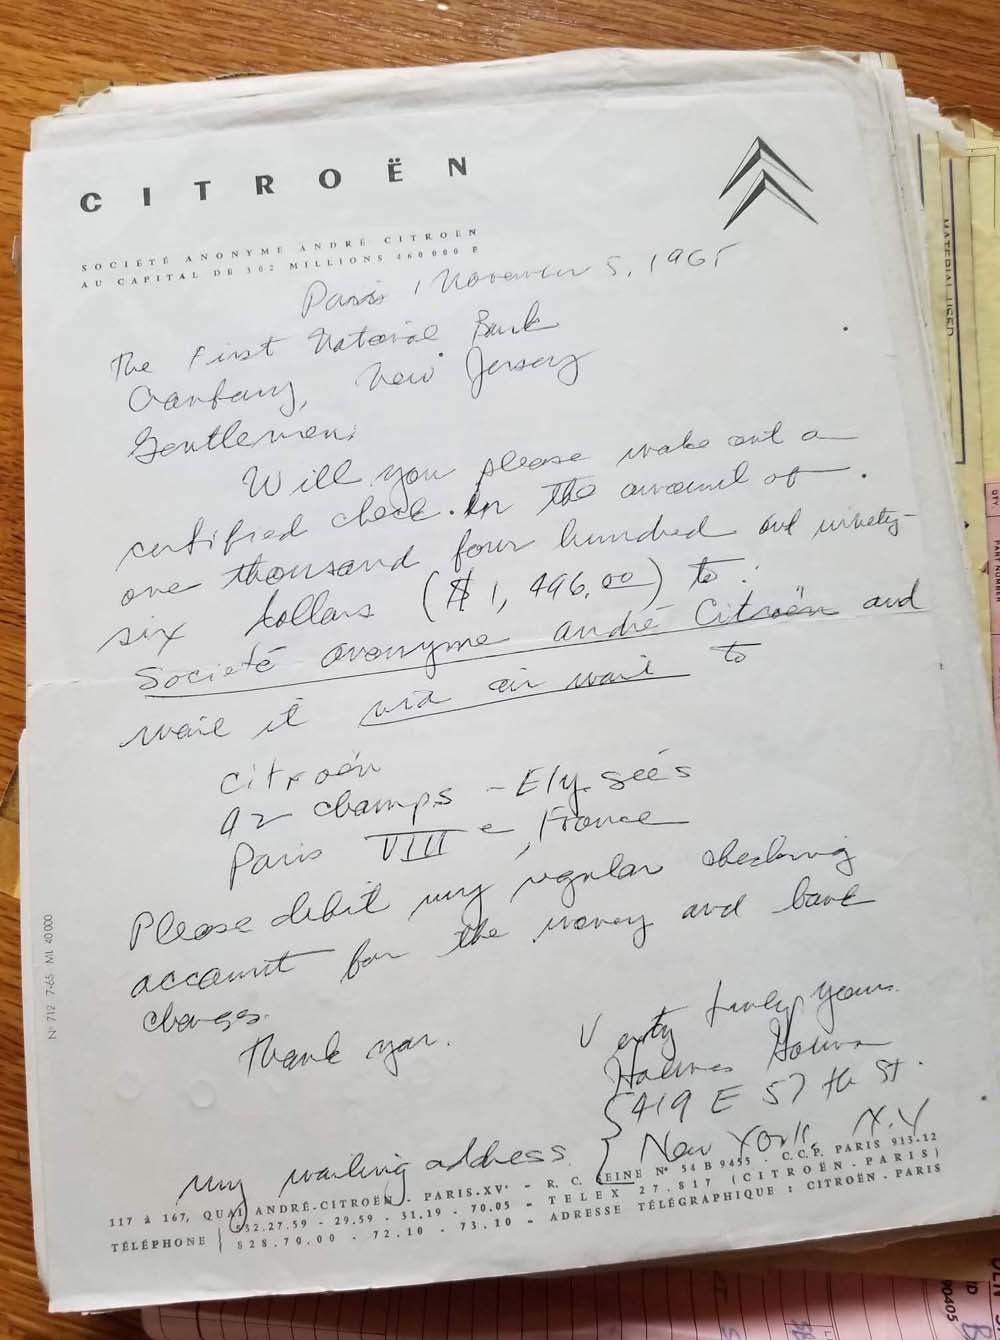 CITROËN
SOCIÉTÉ ANONYME ANDRÉ CITROËN
AU CAPITAL DE 302 MILLIONS 460 000 F
Paris, November 5, 1965
The First National Bank
Cranbury, New Jersey
Gentlemen:
Will you please make out a
certified check in the amount of
one thousand four hundred and ninety-
six dollars ($1,496.00) to:
Société anonyme andré Citroën and
mail it via air mail to
Citroën
92 Champs-Elyseés
Paris VIIIe, France
Please debit my regular checking
account for the money and bank
charges.
Thank you.
Very truly yours
Holmes
419 E 57th St.
My mailing address { New York, N.Y
117 à 167, QUAI ANDRÉ-CITROËN - PARIS-XVe - R. C. SEINE No 54 B 9455 - C.C.P. PARIS 913-12
TÉLÉPHONE 532.27.59 - 29.59 - 31.19 - 70.05 - TELEX 27.817 (CITROËN-PARIS)
828.70.00 - 72.10 - 73.10 - ADRESSE TÉLÉGRAPHIQUE : CITROËN-PARIS
No 712 7-65 ML 40 000
MATERIAL USED
QTY.
PART NUMBER
90405